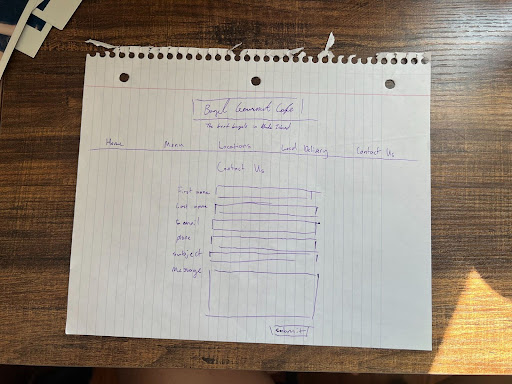 Bagel Gourmet Cafe
The best bagels in Rhode Island
Home Menu Locations Local Delivery Contact Us
Contact Us
First name
Last name
Email
phone
subject
Message
submit